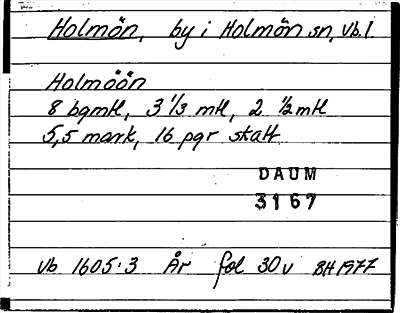 Holmön, by i Holmön sn, Vb. l
Holmöön
8 bgmtl, 3 1/3 mtl, 2 1/2 mtl
5,5 mark, 16 pgr skatt
DAUM
3167
Vb 1605:3 År fol 30v BH 1977